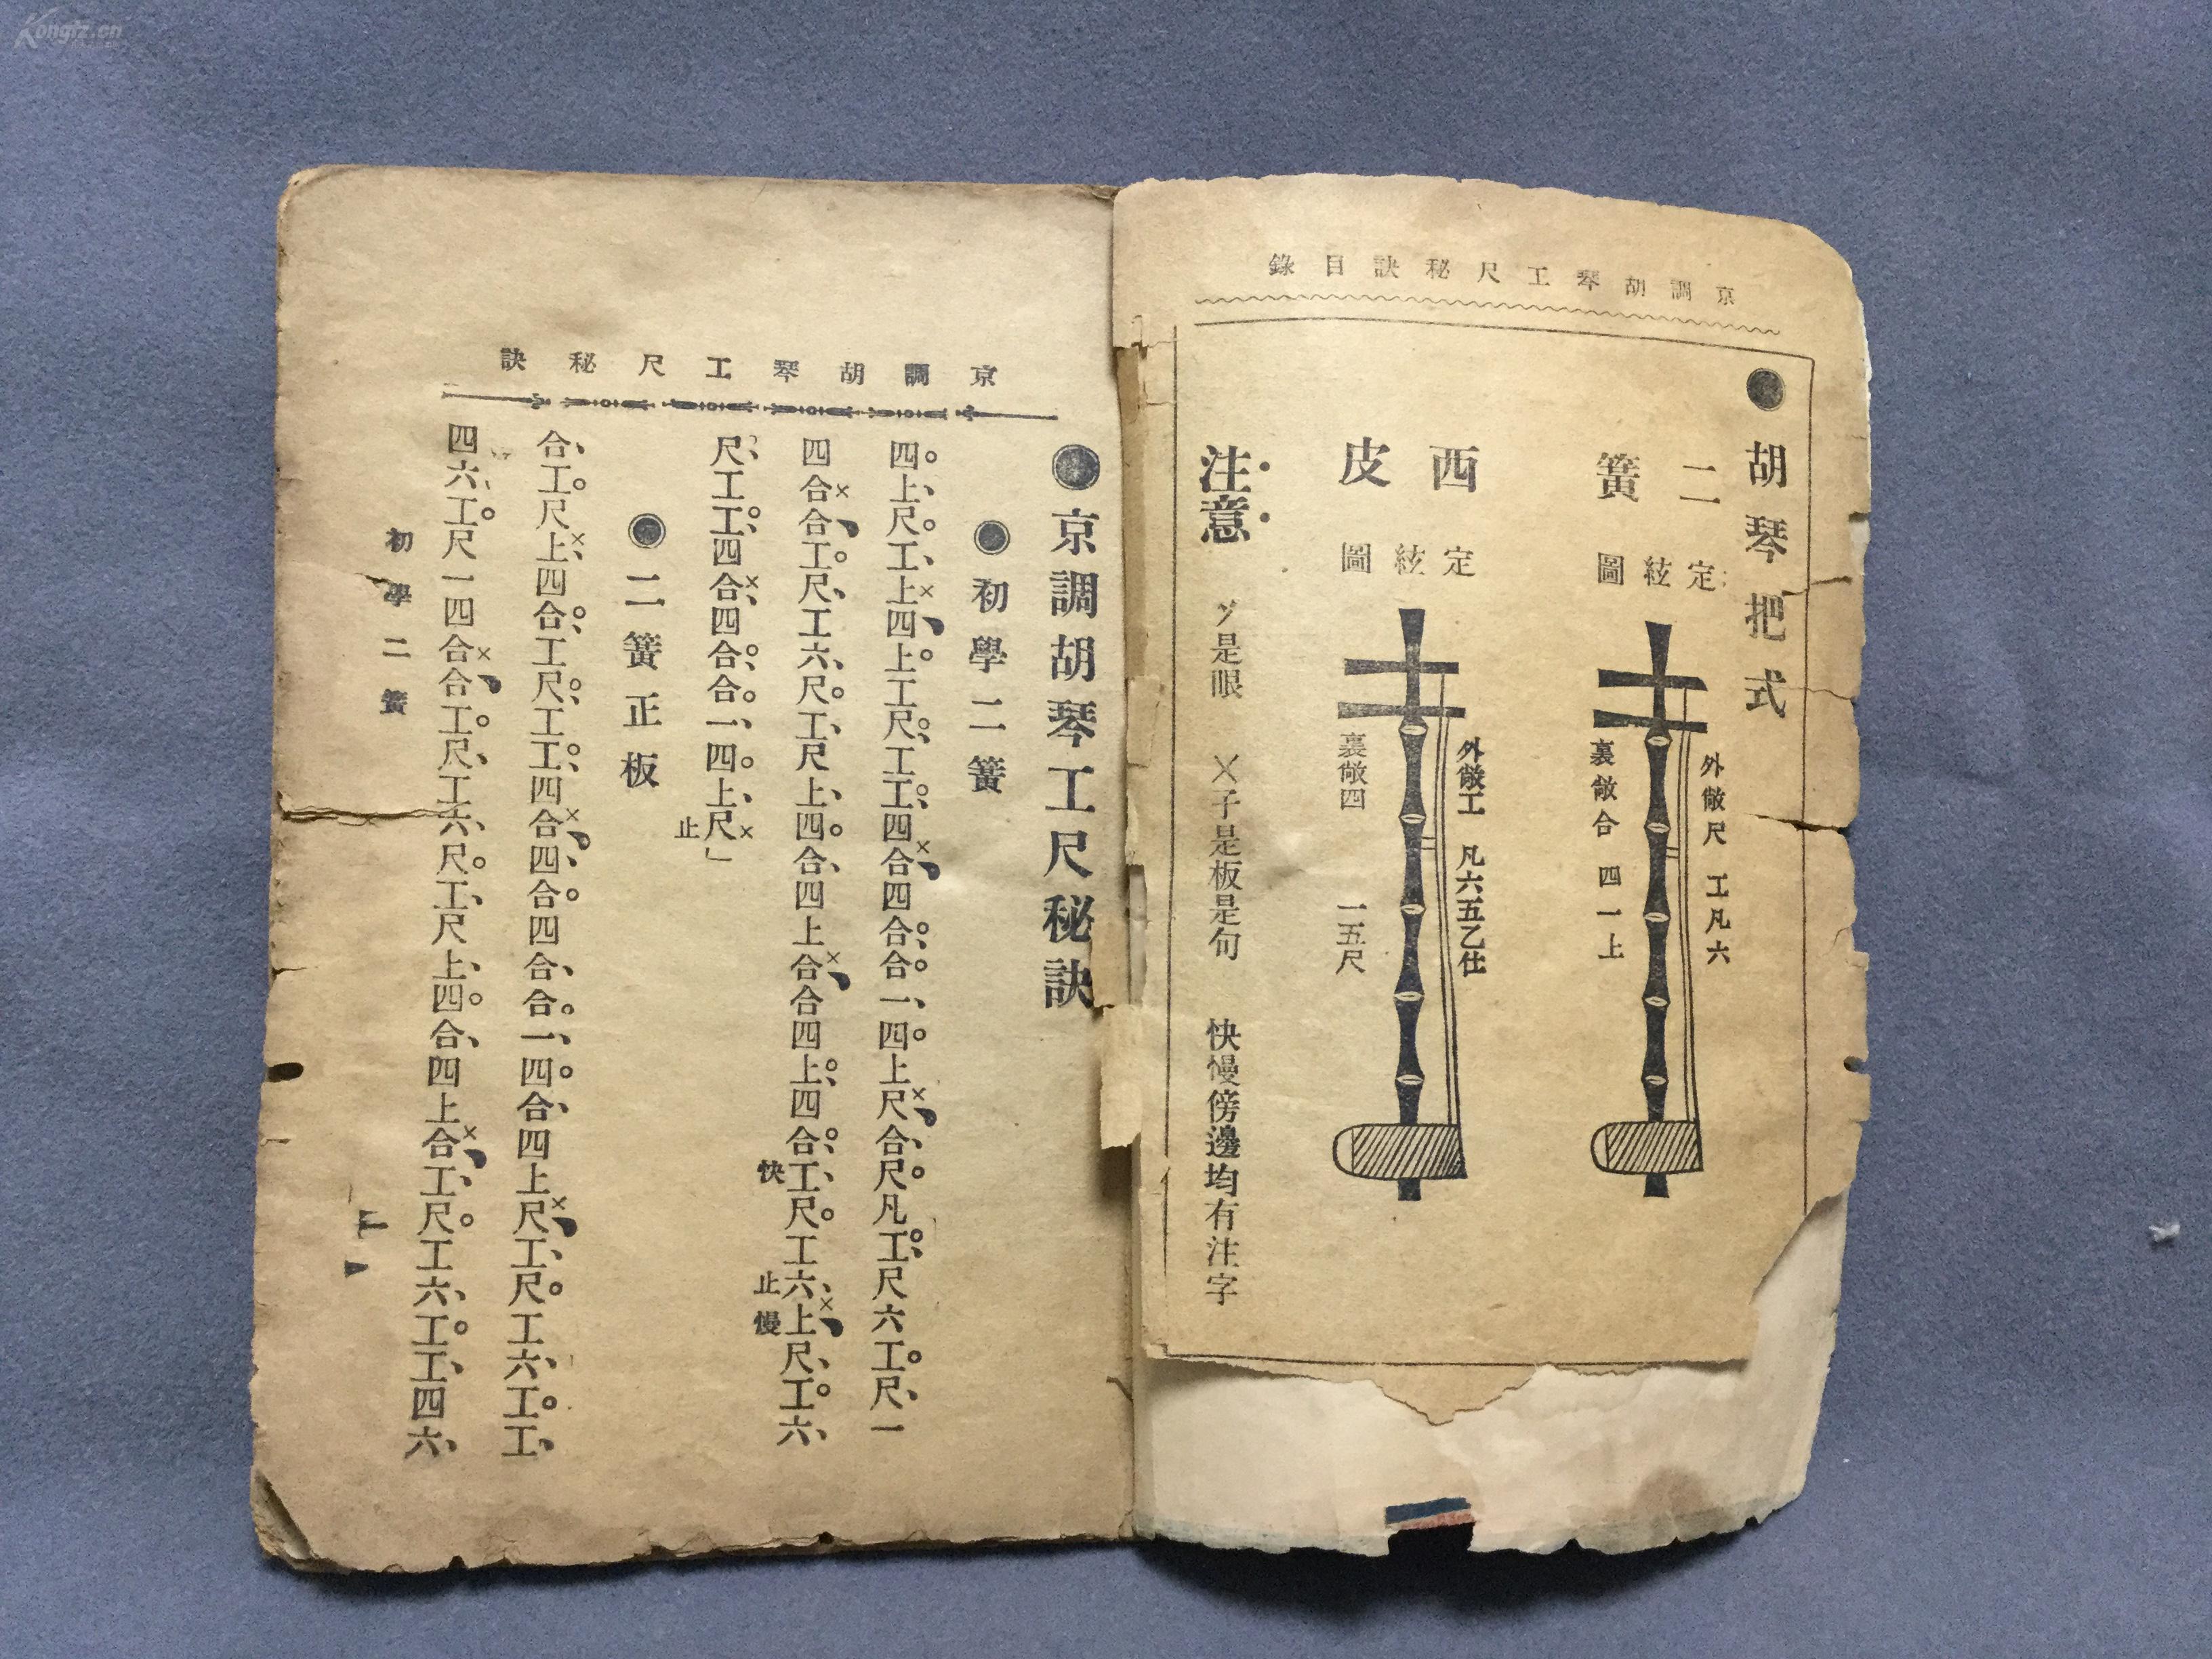 京調胡琴工尺秘訣目錄
胡琴把式
二簧
定絃圖
外敞尺 工凡六
裏敞合 四一上
西皮
定絃圖
外敞工 凡六五乙仕
裏敞四 一五尺
注意
是眼 乂子是板是句 快慢傍邊均有注字
京調胡琴工尺秘訣
京調胡琴工尺秘訣
初學二簧
四。上、尺。工、上×四、上。工尺。、工工。、四合×、四合。、合。一、四。上尺×、合、尺。凡工。、尺六工。尺、一
四合×合、工。尺、工六、尺。工、尺上、四。合、四上合×、合四上。、四合。、工、尺。工六、上×、尺、工。六、
快
止
慢
尺、工工。、四合×、四合。、合。一、四。上、尺×」
止
二簧正板
合、工。尺上×、四合。、工尺。、工工。、四合×、四、合。四合、合。一、四。合、四上尺×、工、尺。工六、工。工、
四六、工。尺一四合×合、工。尺、工六、尺。工、尺上、四。合、四上合×、工、尺。工六、工。工、四六、
初學二簧
一
Kongfz.cn